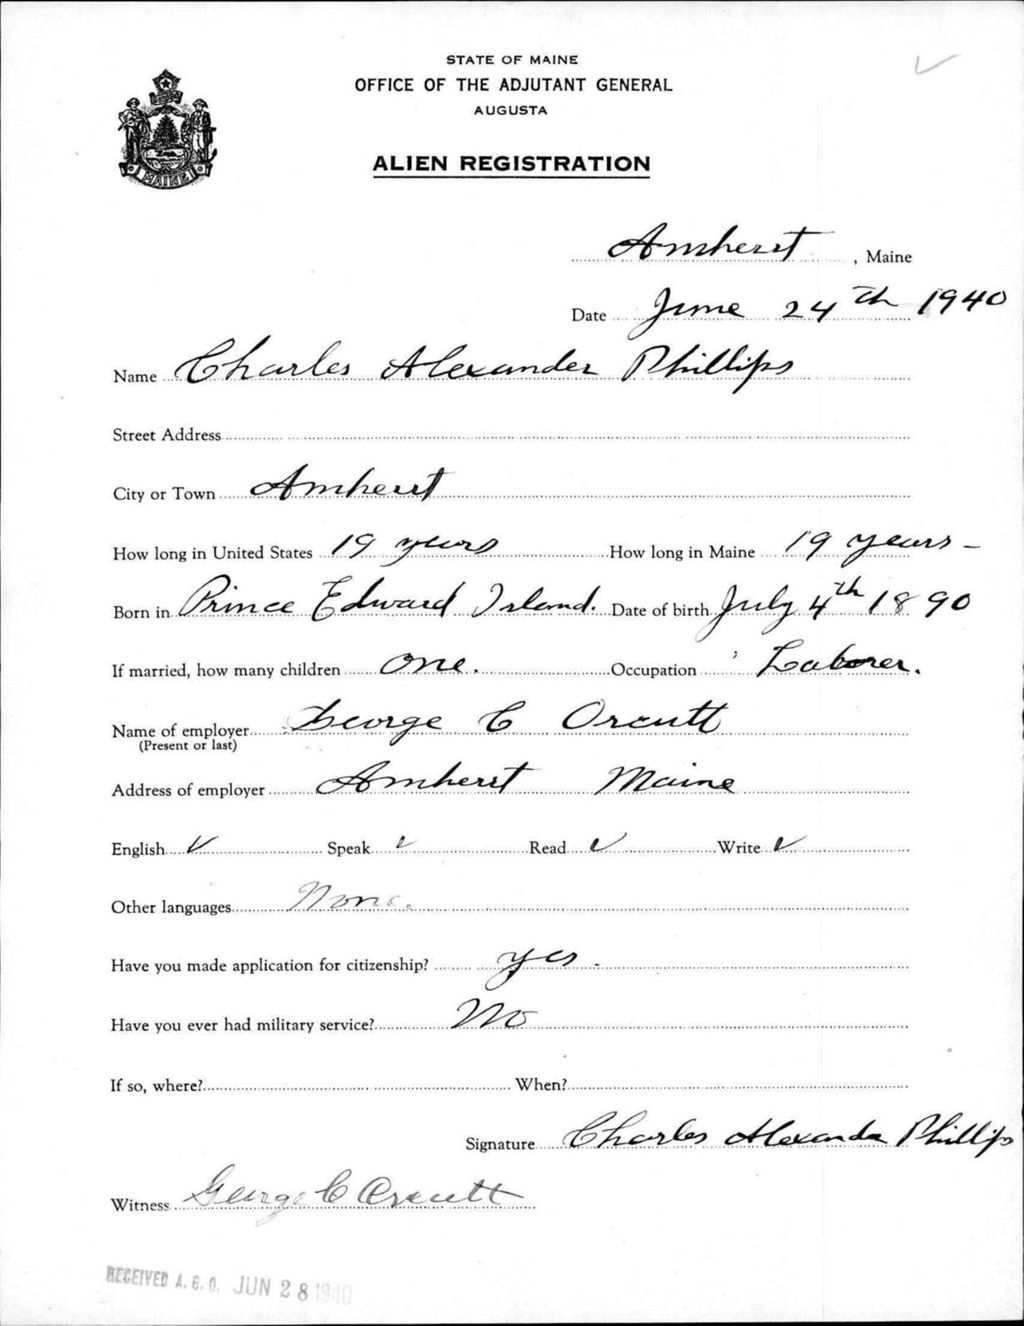 STATE OF MAINE
OFFICE OF THE ADJUTANT GENERAL
AUGUSTA
ALIEN REGISTRATION
MAINE
Amherst, Maine
Date June 24th 1940
Name Charles Alexander Phillips
Street Address
City or Town Amherst
How long in United States 19 years How long in Maine 19 years-
Born in Prince Edward Island. Date of birth July 4th 1890
If married, how many children one. Occupation Laborer.
Name of employer George C Orcutt
(Present or last)
Address of employer Amherst Maine
English ✓ Speak ✓ Read ✓ Write ✓
Other languages None.
Have you made application for citizenship? yes -
Have you ever had military service? No
If so, where? When?
Signature Charles Alexander Phillips
Witness George C Orcutt
RECEIVED A.G.O. JUN 28 1940